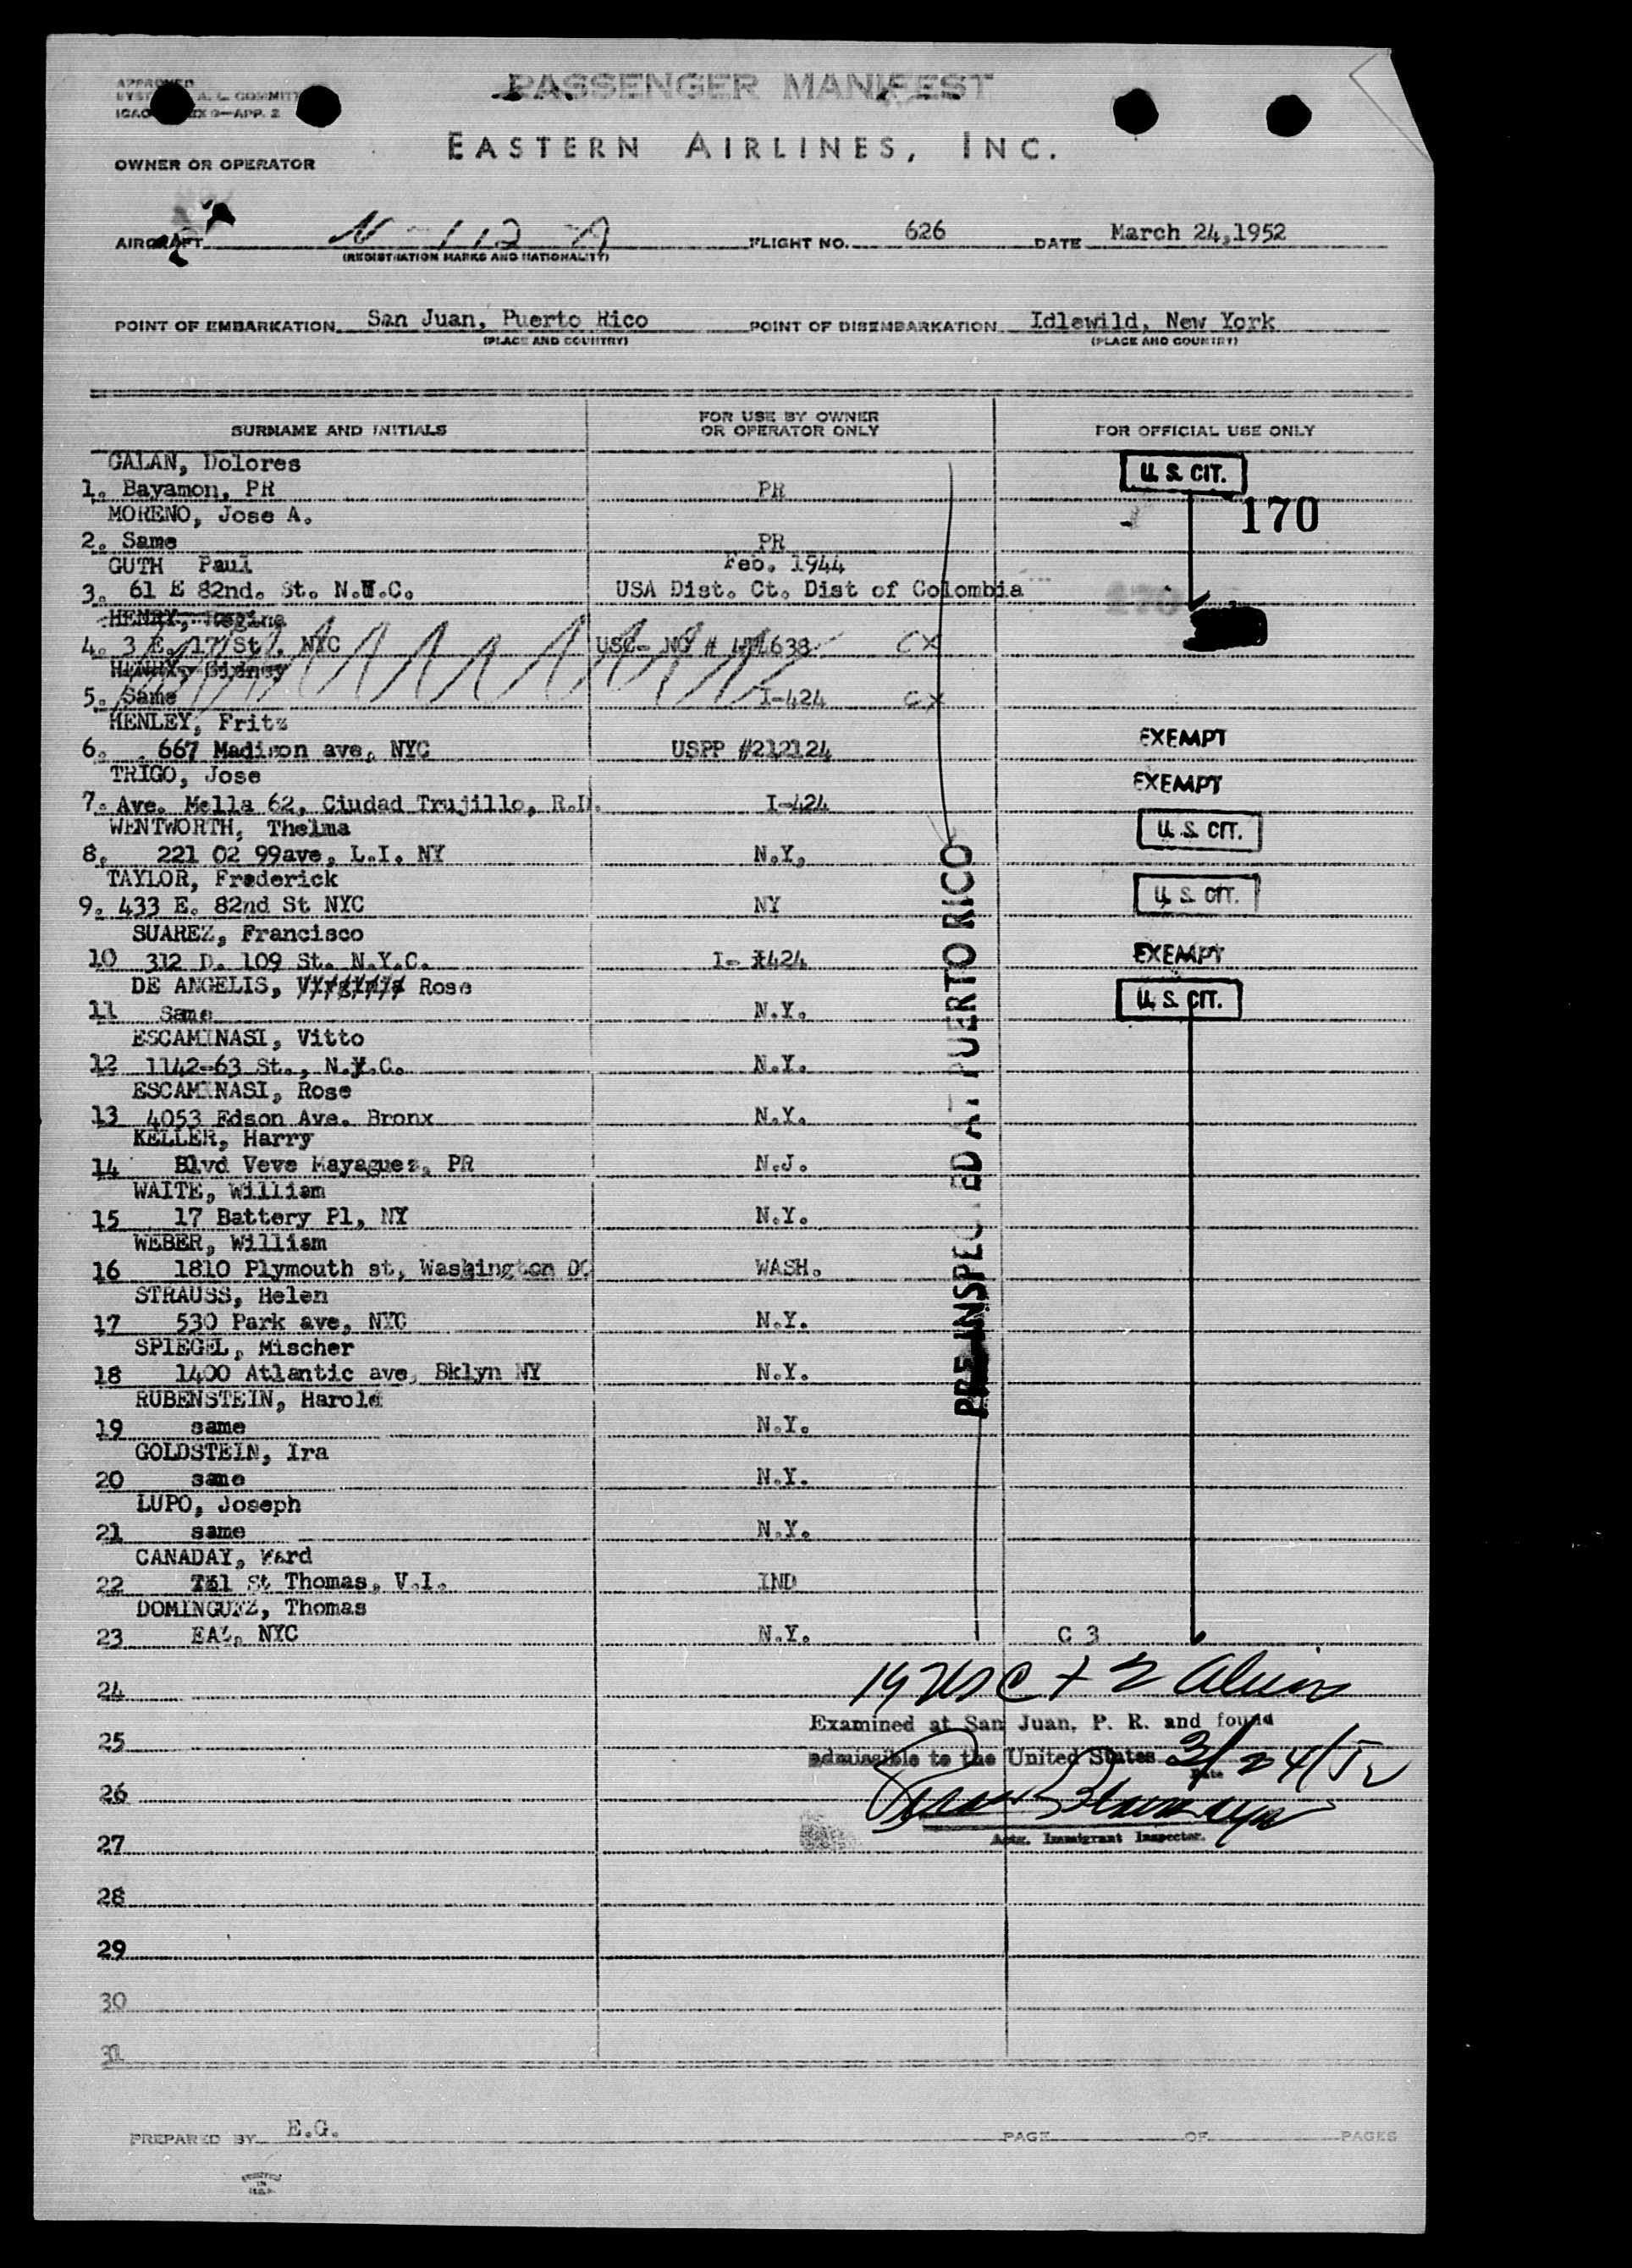 PASSENGER MANIFEST
EASTERN AIRLINES, INC.
OWNER OR OPERATOR
AIRCRAFT N-112 A FLIGHT NO. 626 DATE March 24,1952
(REGISTRATION MARKS AND NATIONALITY)
POINT OF EMBARKATION San Juan, Puerto Rico POINT OF DISEMBARKATION Idlewild, New York
(PLACE AND COUNTRY) (PLACE AND COUNTRY)
SURNAME AND INITIALS FOR USE BY OWNER OR OPERATOR ONLY FOR OFFICIAL USE ONLY
GALAN, Dolores U. S. CIT.
1. Bayamon, PR PR
MORENO, Jose A. 170
2. Same PR
GUTH Paul Feb. 1944
3. 61 E 82nd. St. N.Y.C. USA Dist. Ct. Dist of Colombia
HENRY, Regina
4. 3 E. 17 St. NYC USC- NO # CX
HENRY, Sidney
5. Same I-424 CX
HENLEY, Fritz
6. 667 Madison ave, NYC USPP #212124 EXEMPT
TRIGO, Jose
7. Ave. Mella 62, Ciudad Trujillo, R.D. I-424 EXEMPT
WENTWORTH, Thelma
8. 221 02 99ave, L.I. NY N.Y, U. S. CIT.
TAYLOR, Frederick
9. 433 E. 82nd St NYC NY U. S. CIT.
SUAREZ, Francisco
10 312 D. 109 St. N.Y.C. I- 424 EXEMPT
DE ANGELIS, Virginia Rose
11 Same N.Y. U. S. CIT.
ESCAMINASI, Vitto
12 1142-63 St., N.Y.C. N.Y.
ESCAMINASI, Rose
13 4053 Edson Ave. Bronx N.Y.
KELLER, Harry
14 Blvd Veve Mayaguez, PR N.J.
WAITE, William
15 17 Battery Pl, NY N.Y.
WEBER, William
16 1810 Plymouth st, Washington DC WASH.
STRAUSS, Helen
17 530 Park ave, NYC N.Y.
SPIEGEL, Mischer
18 1400 Atlantic ave, Bklyn NY N.Y.
RUBENSTEIN, Harold
19 same N.Y.
GOLDSTEIN, Ira
20 same N.Y.
LUPO, Joseph
21 same N.Y.
CANADAY, Ward
22 St Thomas, V.I. IND
DOMINGUEZ, Thomas
23 EAL, NYC N.Y. C 3
PRE-INSPECTED AT PUERTO RICO
24
19 USC + 2 Aliens
Examined at San Juan, P. R. and found
25
admissible to the United States 3/24/52
Date
26
Actg. Immigrant Inspector.
27
28
29
30
31
PREPARED BY E.G. PAGE OF PAGES